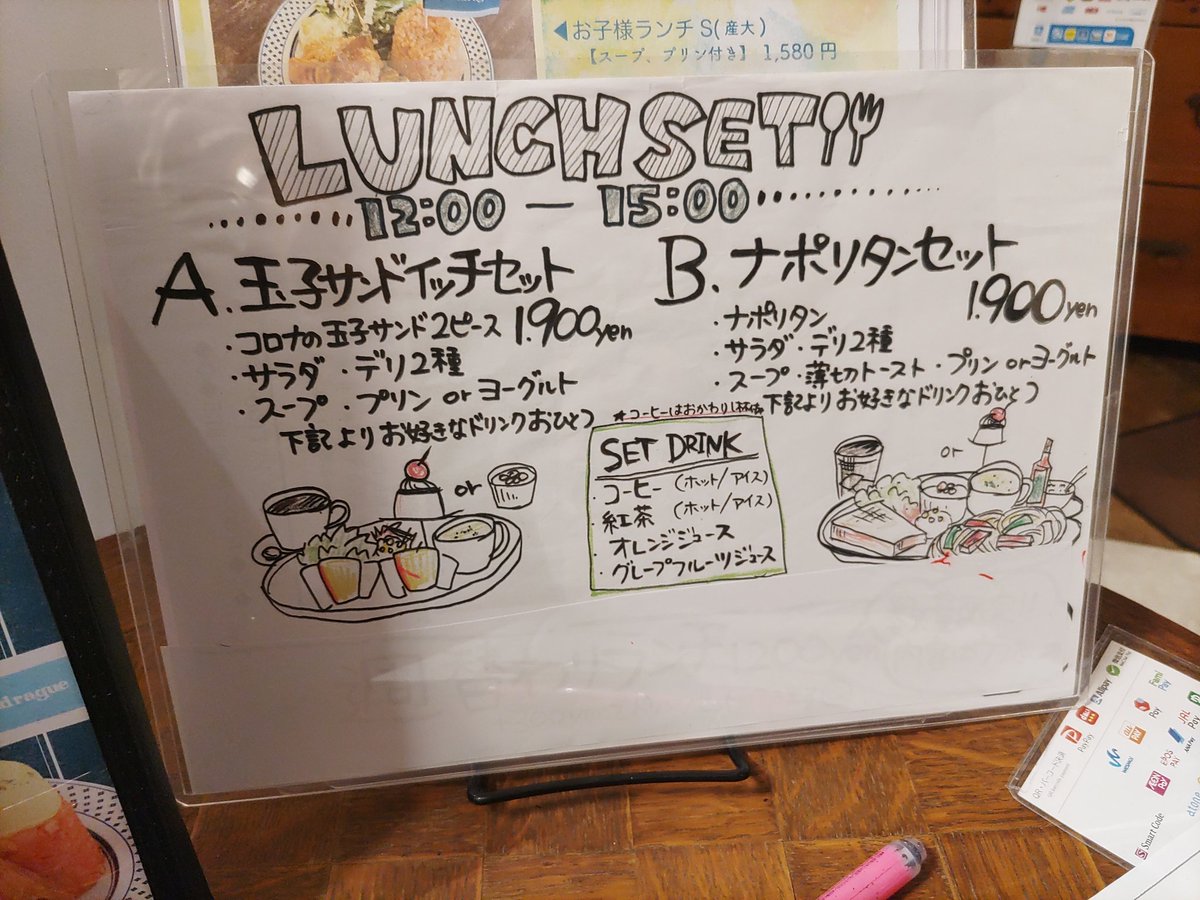 ◀お子様ランチS(産大)
【スープ、プリン付き】 1,580円
LUNCH SET
12:00 — 15:00
A. 玉子サンドイッチセット
1.900yen
・コロナの玉子サンド2ピース
・サラダ ・デリ2種
・スープ ・プリン or ヨーグルト
下記よりお好きなドリンクおひとつ
B. ナポリタンセット
1.900yen
・ナポリタン
・サラダ・デリ2種
・スープ・薄切トースト・プリン or ヨーグルト
下記よりお好きなドリンクおひとつ
or
or
★コーヒーはおかわり1杯
SET DRINK
・コーヒー (ホット/アイス)
・紅茶 (ホット/アイス)
・オレンジジュース
・グレープフルーツジュース
drague
Alipay
Fami Pay
PayPay
Pay
JAL Pay
EPOS PAY
Smart Code
dtone